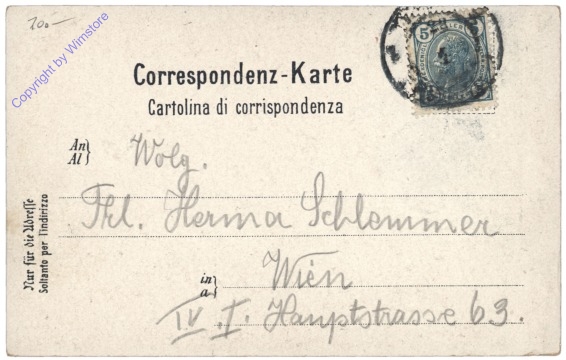 200.-
Copyright by Wimstore
5
Correspondenz-Karte
Cartolina di corrispondenza
An
Al
Wolg.
Frl. Herma Schlemmer
in
a
Wien
IV. I. Hauptstrasse 63.
Nur für die Adresse
Soltanto per l'indirizzo